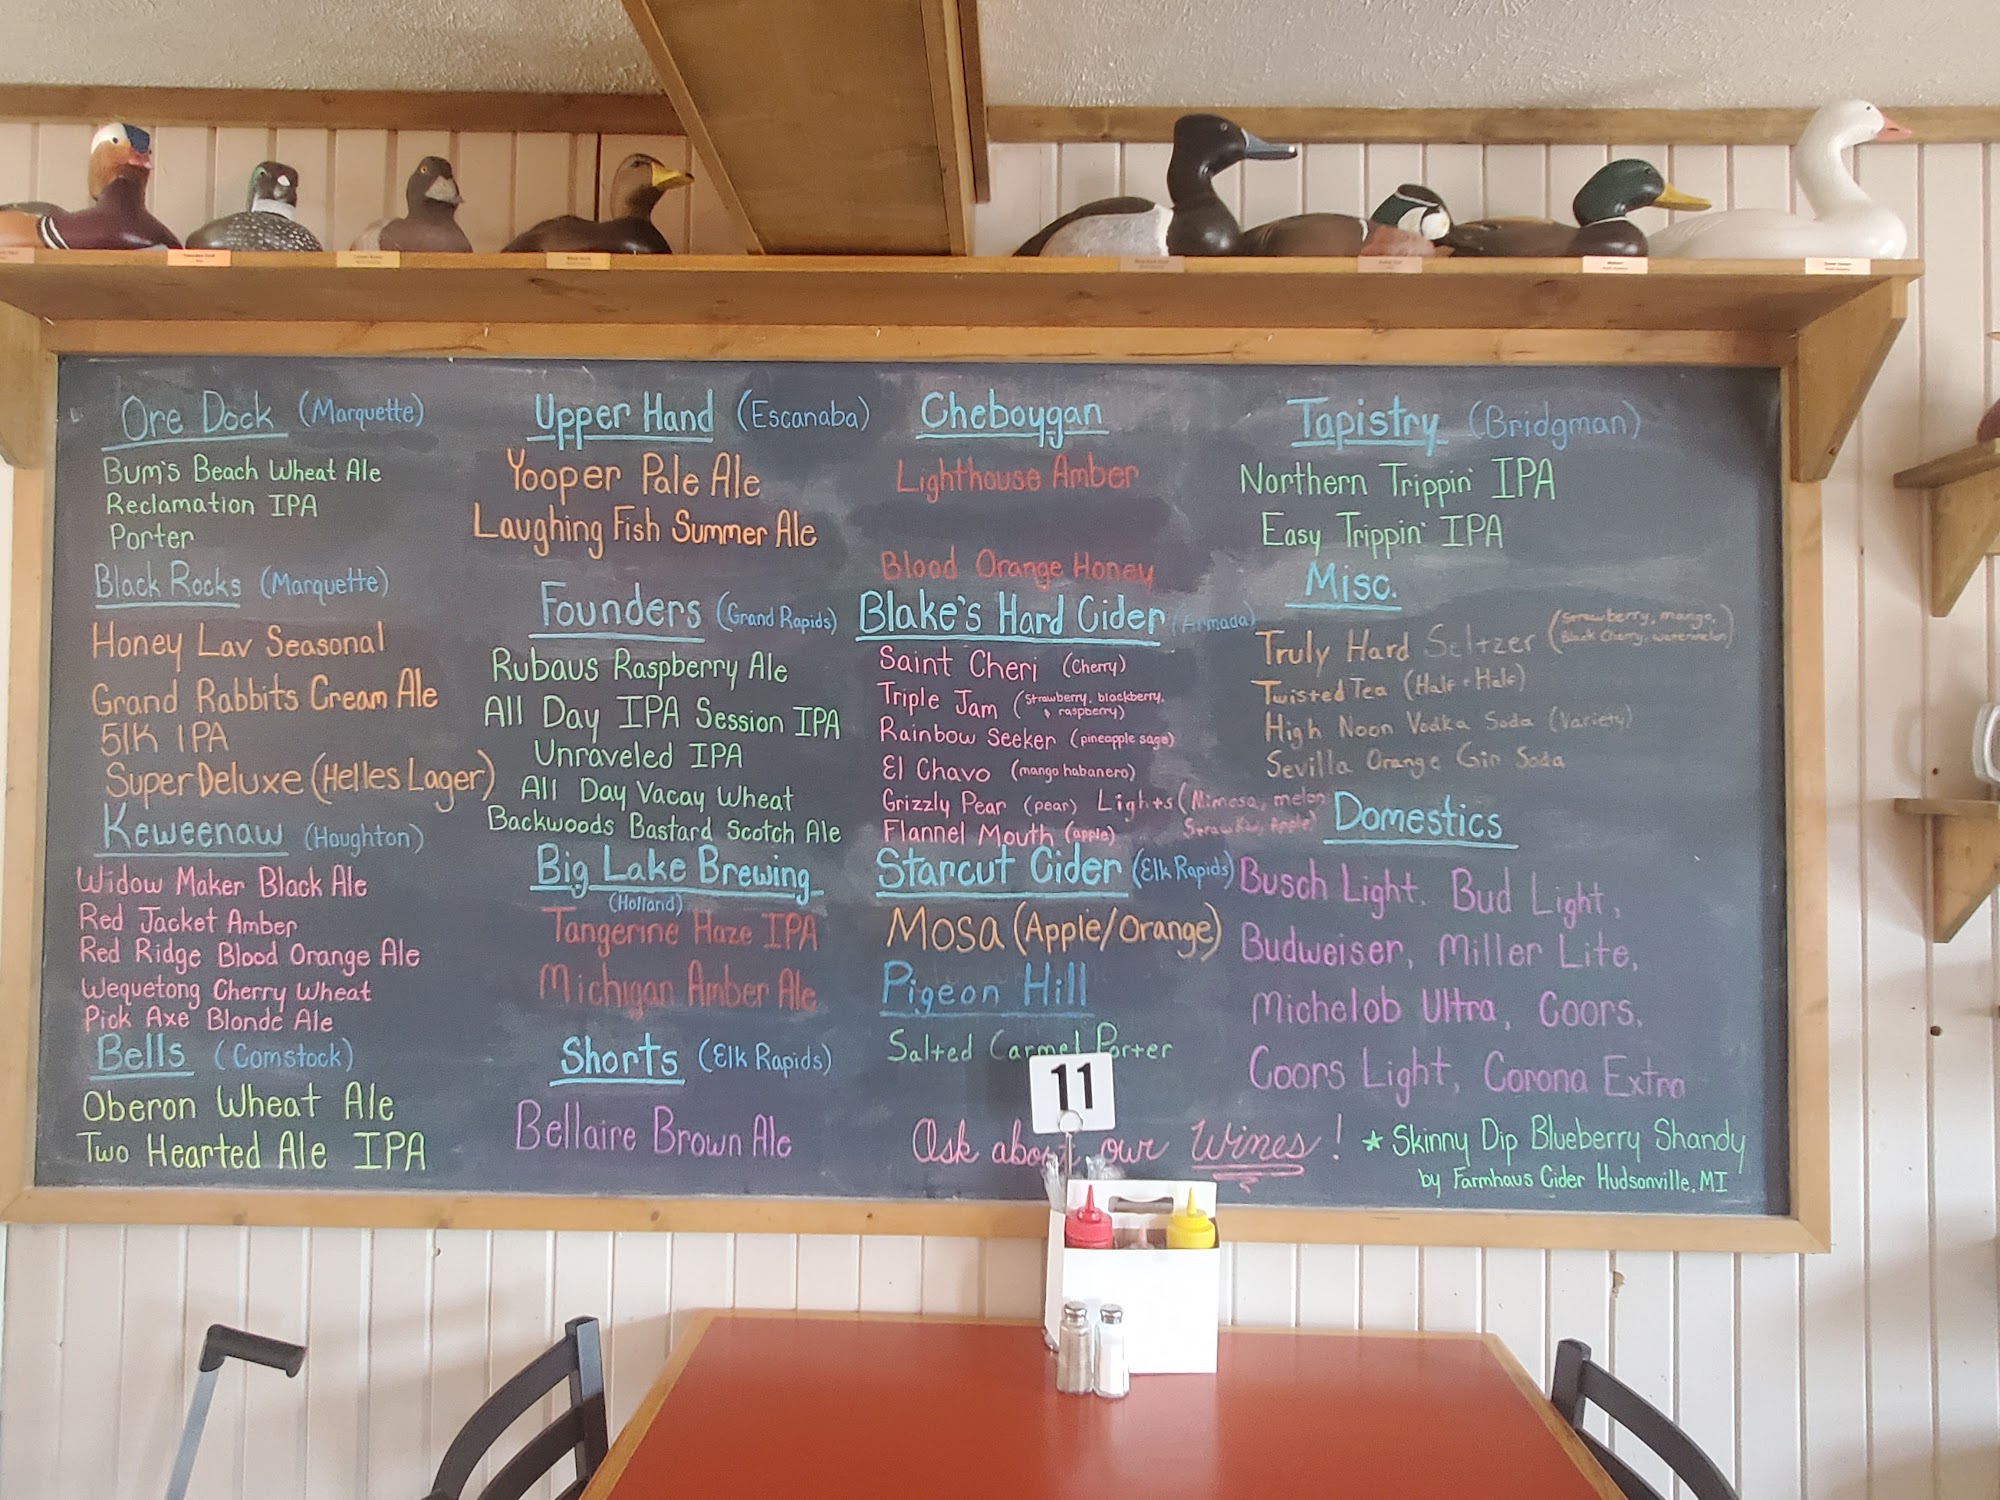 Ore Dock (Marquette)
Bum's Beach Wheat Ale
Reclamation IPA
Porter
Black Rocks (Marquette)
Honey Lav Seasonal
Grand Rabbits Cream Ale
51K IPA
Super Deluxe (Helles Lager)
Keweenaw (Houghton)
Widow Maker Black Ale
Red Jacket Amber
Red Ridge Blood Orange Ale
Wequetong Cherry Wheat
Pick Axe Blonde Ale
Bells (Comstock)
Oberon Wheat Ale
Two Hearted Ale IPA
Upper Hand (Escanaba)
Yooper Pale Ale
Laughing Fish Summer Ale
Founders (Grand Rapids)
Rubaus Raspberry Ale
All Day IPA Session IPA
Unraveled IPA
All Day Vacay Wheat
Backwoods Bastard Scotch Ale
Big Lake Brewing
(Holland)
Tangerine Haze IPA
Michigan Amber Ale
Shorts (Elk Rapids)
Bellaire Brown Ale
Cheboygan
Lighthouse Amber
Blood Orange Honey
Blake's Hard Cider (Armada)
Saint Cheri (Cherry)
Triple Jam (Strawberry, blackberry,
& raspberry)
Rainbow Seeker (pineapple sage)
El Chavo (mango habanero)
Grizzly Pear (pear) Lights (Mimosa, melon
Flannel Mouth (apple) Straw Kiw, Apple)
Starcut Cider (Elk Rapids)
Mosa (Apple/Orange)
Pigeon Hill
Salted Carmel Porter
11
Ask about our Wines!
Tapistry (Bridgman)
Northern Trippin' IPA
Easy Trippin' IPA
Misc.
Truly Hard Seltzer (Strawberry, mango,
Black Cherry, watermelon)
Twisted Tea (Half + Half)
High Noon Vodka Soda (Variety)
Sevilla Orange Gin Soda
Domestics
Busch Light. Bud Light,
Budweiser, Miller Lite,
Michelob Ultra, Coors,
Coors Light, Corona Extra
★ Skinny Dip Blueberry Shandy
by Farmhaus Cider Hudsonville, MI